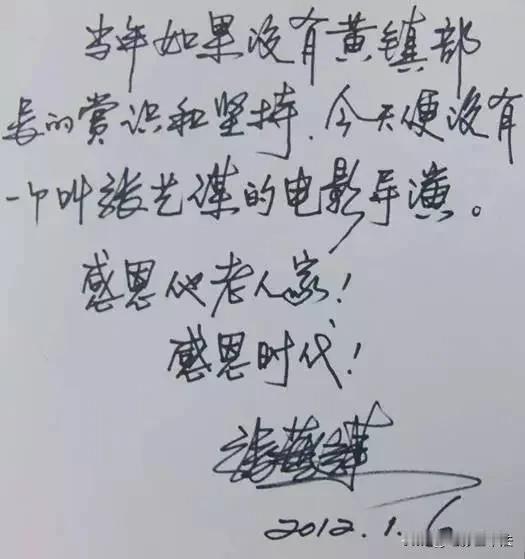 当年如果没有黄镇部
长的赏识和坚持，今天便没有
一个叫张艺谋的电影导演。
感恩他老人家！
感恩时代！
张艺谋
2012.1.6